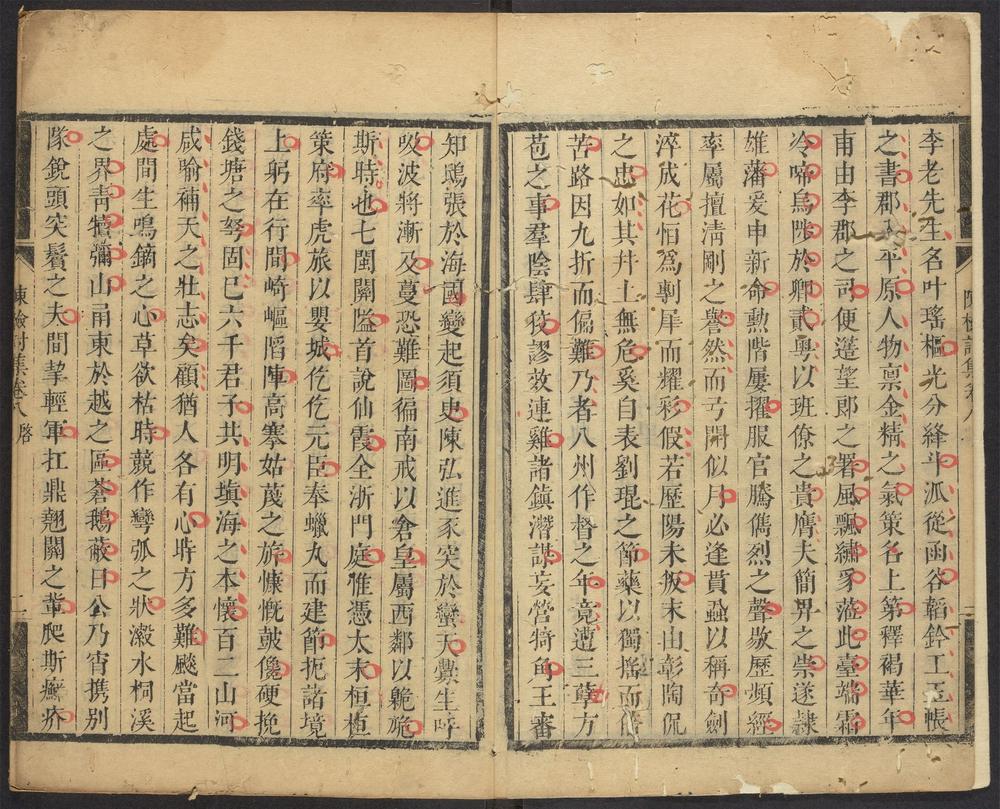 李老先生名叶瑤樞光分絳斗派從函谷韜鈐工玉帳
之書郡平原人物禀金精之氣策名上第釋褐華年
甫由李郡之司便遷望郎之署風飄繡豸蒞此臺端霜
冷啼烏陟於卿貳粵以班僚之貴膺夫簡畀之崇遂隸
雄藩爰申新命勲階屢擢服官騰儁烈之聲敭歷頻經
率屬擅淸剛之譽然而弓開似月必逢貫蝨以稱奇劍
淬成花怕爲剸犀而耀彩假若歷陽未扳末由彰陶侃
之忠如其幷土無危奚自表劉琨之節藥以獨搖而
苦路因九折而偏難乃者八州作督之年竟遭三孽方
苞之事羣陰肆役謬效連雞諸鎭潛謀妄營犄角王審
知鴟張於海國變起須臾陳弘進豕突於蠻天釁生呼
吸波將漸及蔓恐難圖徧南戒以倉皇屬西鄰以臲卼
斯時也七閩關隘首說仙霞全浙門庭惟憑太末桓桓
策府率虎旅以嬰城仡仡元臣奉蠟丸而建節扼諸境
上躬在行間崎嶇蹈陣高搴姑蔑之旂慷慨鼓儳硬挽
錢塘之弩固巳六千君子共明塡海之本懷百二山河
咸喻補天之壯志矣顧猶人各有心時方多難颷當起
處間生鳴鏑之心草欲枯時競作彎弧之狀瀫水桐溪
之界靑犢彌山甬東於越之區蒼鵝蔽日公乃宵携別
隊銳頭突鬢之夫間挈輕軍扛鼎翹關之輩爬斯癬疥
陳檢討集卷八
陳檢討集卷八 啓 二